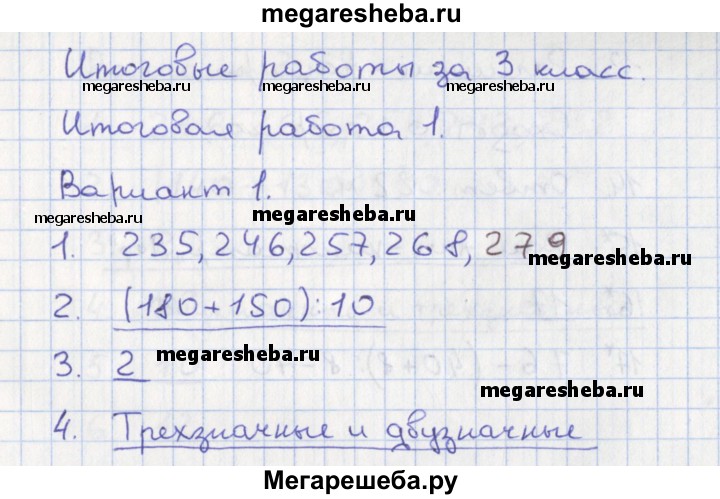 megaresheba.ru
Итоговые работы за 3 класс.
megaresheba.ru megaresheba.ru megaresheba.ru
Итоговая работа 1.
Вариант 1.
megaresheba.ru megaresheba.ru
1. 235, 246, 257, 268, 279
megaresheba.ru
2. (180+150):10
3. 2 megaresheba.ru
megaresheba.ru
4. Трехзначные и двузначные
Мегарешеба.ру